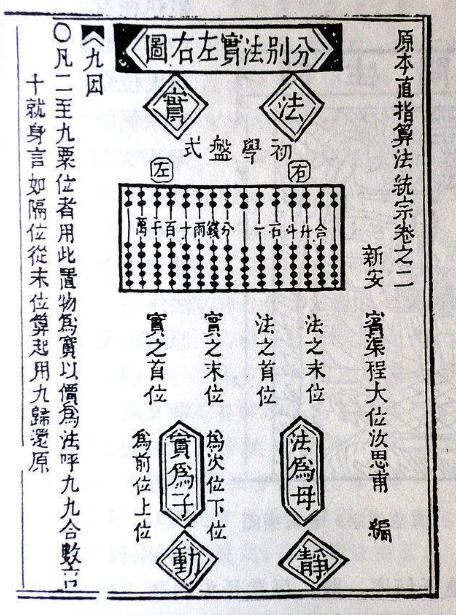 原本直指算法統宗卷之二
新安 賓渠程大位汝思甫 編
分别法實左右圖
法 實
初學盤式
右 左
合升斗石一分錢兩十百千萬
法之末位
法之首位
實之末位
實之首位
法為母
靜
為次位下位
實為子
動
為前位上位
九因
〇凡二至九粟位者用此置物為實以價為法呼九九合數言
十就身言如隔位從末位算起用九歸還原